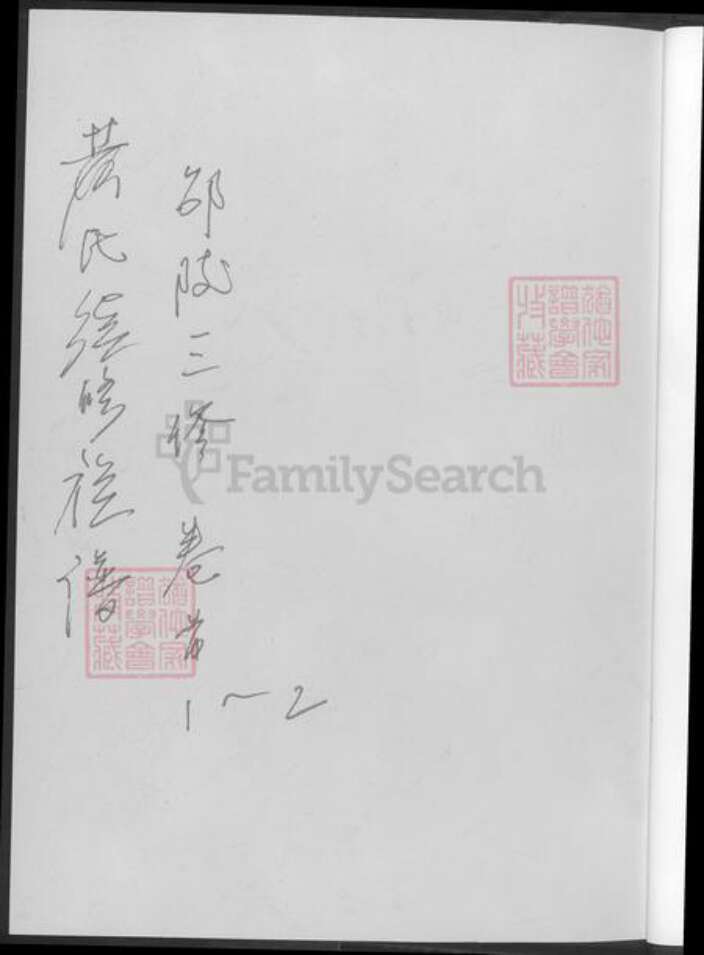 邵陵三修 卷首
1~2
氏續修族譜
猶他家
譜學會
收藏
猶他家
譜學會
收藏
FamilySearch